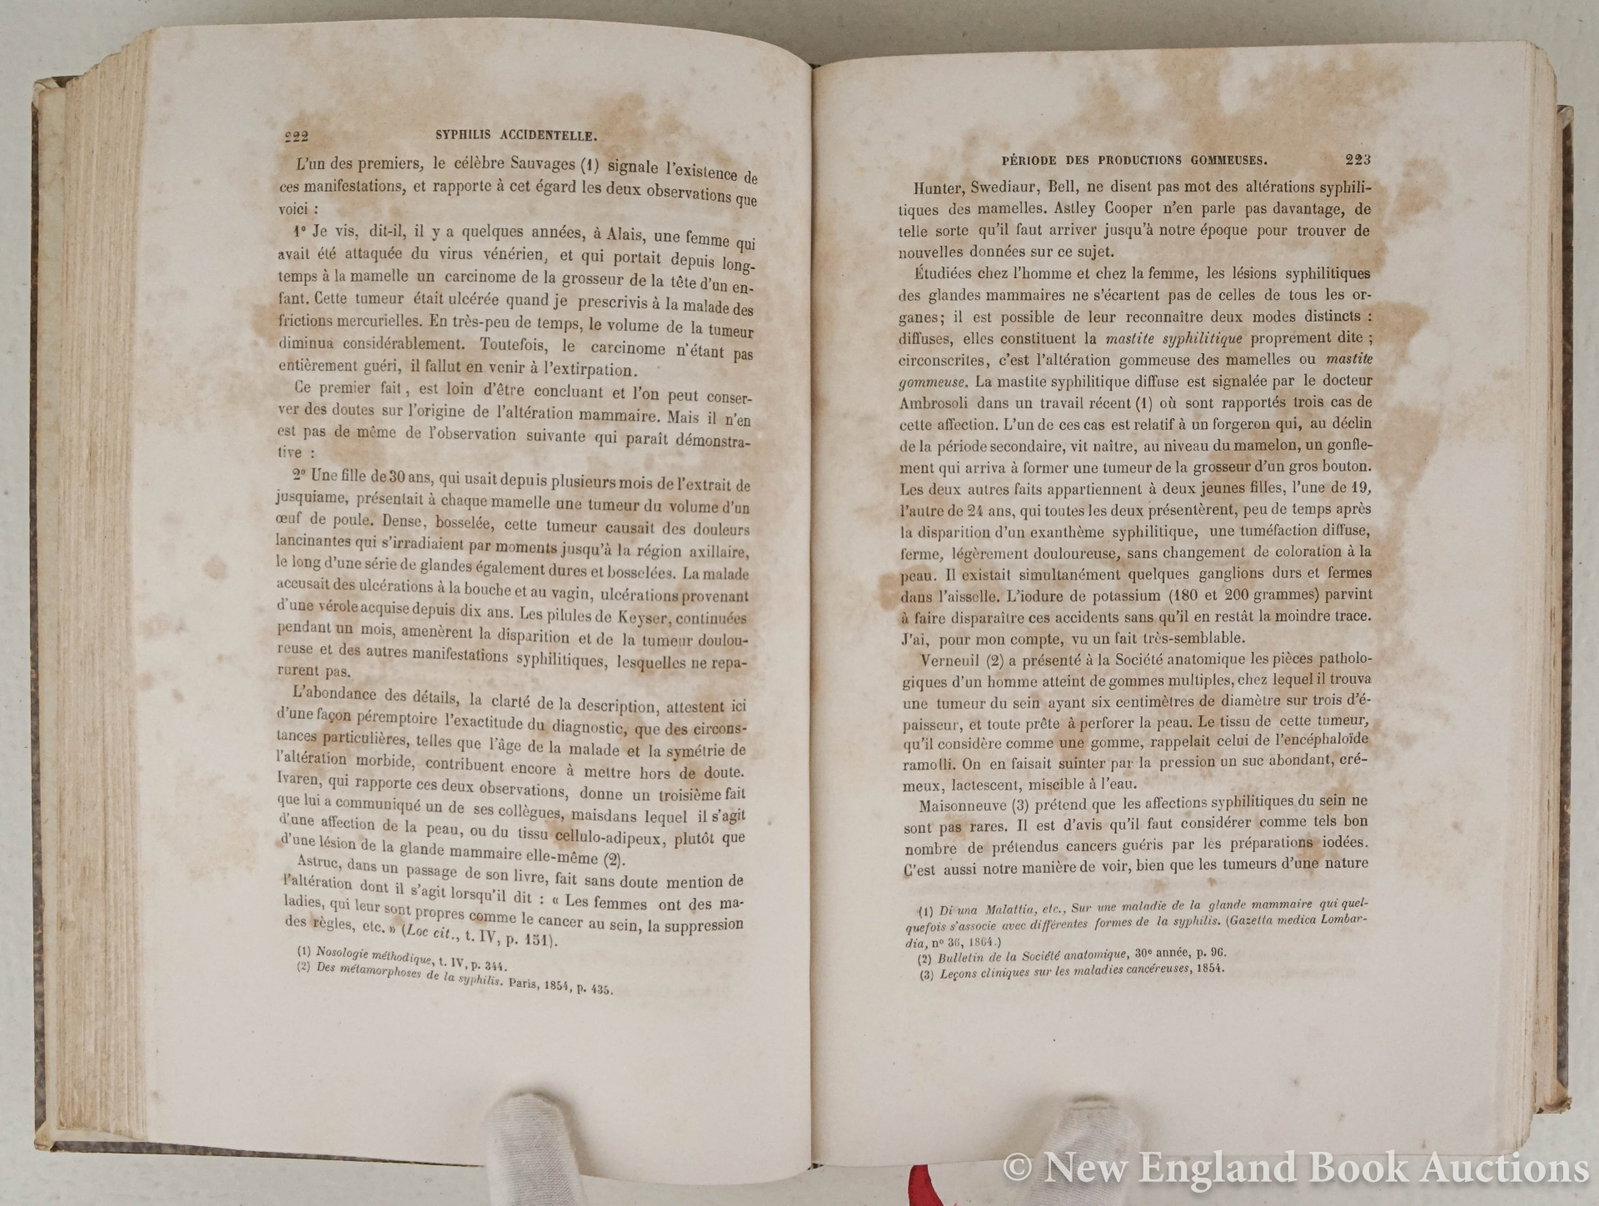 222 SYPHILIS ACCIDENTELLE.
L'un des premiers, le célèbre Sauvages (1) signale l'existence de
ces manifestations, et rapporte à cet égard les deux observations que
voici :
1° Je vis, dit-il, il y a quelques années, à Alais, une femme qui
avait été attaquée du virus vénérien, et qui portait depuis long-
temps à la mamelle un carcinome de la grosseur de la tête d'un en-
fant. Cette tumeur était ulcérée quand je prescrivis à la malade des
frictions mercurielles. En très-peu de temps, le volume de la tumeur
diminua considérablement. Toutefois, le carcinome n'étant pas
entièrement guéri, il fallut en venir à l'extirpation.
Ce premier fait, est loin d'être concluant et l'on peut conser-
ver des doutes sur l'origine de l'altération mammaire. Mais il n'en
est pas de même de l'observation suivante qui paraît démonstra-
tive :
2° Une fille de 30 ans, qui usait depuis plusieurs mois de l'extrait de
jusquiame, présentait à chaque mamelle une tumeur du volume d'un
œuf de poule. Dense, bosselée, cette tumeur causait des douleurs
lancinantes qui s'irradiaient par moments jusqu'à la région axillaire,
le long d'une série de glandes également dures et bosselées. La malade
accusait des ulcérations à la bouche et au vagin, ulcérations provenant
d'une vérole acquise depuis dix ans. Les pilules de Keyser, continuées
pendant un mois, amenèrent la disparition et de la tumeur doulou-
reuse et des autres manifestations syphilitiques, lesquelles ne repa-
rurent pas.
L'abondance des détails, la clarté de la description, attestent ici
d'une façon péremptoire l'exactitude du diagnostic, que des circons-
tances particulières, telles que l'âge de la malade et la symétrie de
l'altération morbide, contribuent encore à mettre hors de doute.
Ivaren, qui rapporte ces deux observations, donne un troisième fait
que lui a communiqué un de ses collègues, maisdans lequel il s'agit
d'une affection de la peau, ou du tissu cellulo-adipeux, plutôt que
d'une lésion de la glande mammaire elle-même (2).
Astruc, dans un passage de son livre, fait sans doute mention de
l'altération dont il s'agit lorsqu'il dit : « Les femmes ont des ma-
ladies, qui leur sont propres comme le cancer au sein, la suppression
des règles, etc. » (Loc cit., t. IV, p. 151).
(1) Nosologie méthodique, t. IV, p. 344.
(2) Des métamorphoses de la syphilis. Paris, 1854, p. 435.
PÉRIODE DES PRODUCTIONS GOMMEUSES. 223
Hunter, Swediaur, Bell, ne disent pas mot des altérations syphili-
tiques des mamelles. Astley Cooper n'en parle pas davantage, de
telle sorte qu'il faut arriver jusqu'à notre époque pour trouver de
nouvelles données sur ce sujet.
Étudiées chez l'homme et chez la femme, les lésions syphilitiques
des glandes mammaires ne s'écartent pas de celles de tous les or-
ganes; il est possible de leur reconnaître deux modes distincts :
diffuses, elles constituent la mastite syphilitique proprement dite ;
circonscrites, c'est l'altération gommeuse des mamelles ou mastite
gommeuse. La mastite syphilitique diffuse est signalée par le docteur
Ambrosoli dans un travail récent (1) où sont rapportés trois cas de
cette affection. L'un de ces cas est relatif à un forgeron qui, au déclin
de la période secondaire, vit naître, au niveau du mamelon, un gonfle-
ment qui arriva à former une tumeur de la grosseur d'un gros bouton.
Les deux autres faits appartiennent à deux jeunes filles, l'une de 19,
l'autre de 24 ans, qui toutes les deux présentèrent, peu de temps après
la disparition d'un exanthème syphilitique, une tuméfaction diffuse,
ferme, légèrement douloureuse, sans changement de coloration à la
peau. Il existait simultanément quelques ganglions durs et fermes
dans l'aisselle. L'iodure de potassium (180 et 200 grammes) parvint
à faire disparaître ces accidents sans qu'il en restât la moindre trace.
J'ai, pour mon compte, vu un fait très-semblable.
Verneuil (2) a présenté à la Société anatomique les pièces patholo-
giques d'un homme atteint de gommes multiples, chez lequel il trouva
une tumeur du sein ayant six centimètres de diamètre sur trois d'é-
paisseur, et toute prête à perforer la peau. Le tissu de cette tumeur,
qu'il considère comme une gomme, rappelait celui de l'encéphaloïde
ramolli. On en faisait suinter par la pression un suc abondant, cré-
meux, lactescent, miscible à l'eau.
Maisonneuve (3) prétend que les affections syphilitiques du sein ne
sont pas rares. Il est d'avis qu'il faut considérer comme tels bon
nombre de prétendus cancers guéris par les préparations iodées.
C'est aussi notre manière de voir, bien que les tumeurs d'une nature
(1) Di una Malattia, etc., Sur une maladie de la glande mammaire qui quel-
quefois s'associe avec différentes formes de la syphilis. (Gazetta medica Lombar-
dia, n° 36, 1864.)
(2) Bulletin de la Société anatomique, 30e année, p. 96.
(3) Leçons cliniques sur les maladies cancéreuses, 1854.
© New England Book Auctions